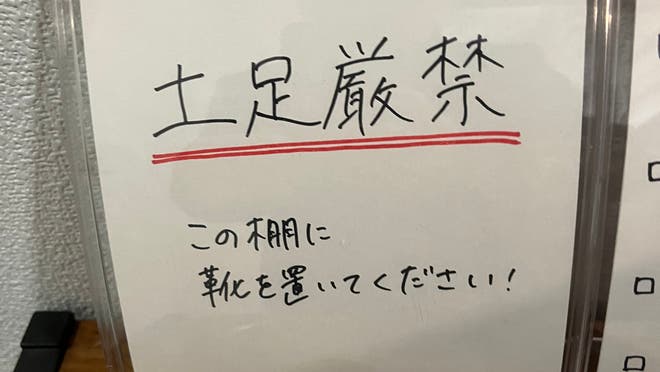 土足厳禁
この棚に
靴を置いてください!